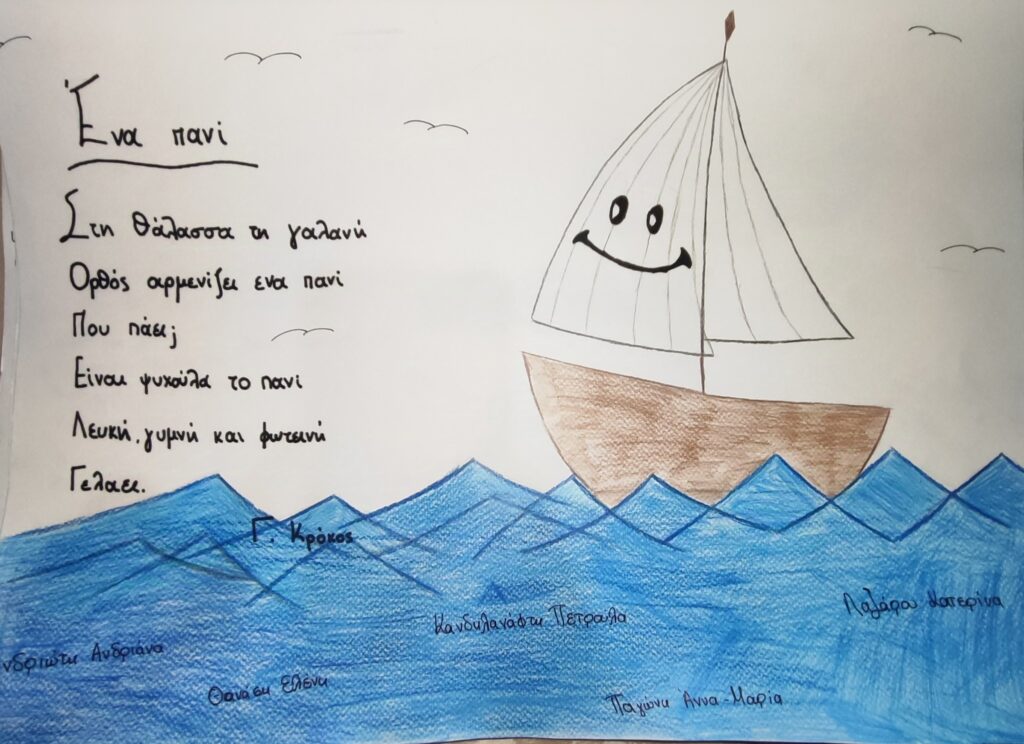 Ένα πανί
Στη θάλασσα τη γαλανή
Ορθός αρμενίζει ενα πανί
Που πάει;
Είναι ψυχούλα το πανί
Λευκή, γυμνή και φωτεινή
Γελάει.
Γ. Κρόκος
Λαζάρου Κατερίνα
Κανδηλανάφτη Πετρούλα
Ανδριάνα
Θανάση Ελένη
Παγώνη Άννα-Μαρία